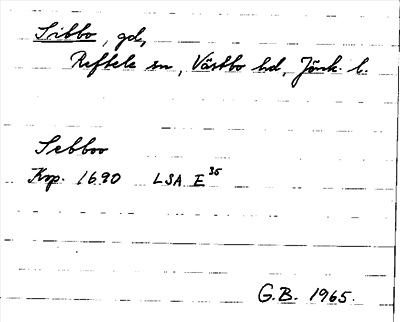 Sibbo, gd,
Reftele sn, Västbo hd, Jönk. l.
Sebboo
Kop. 1690 LSA E³⁵
G.B. 1965.